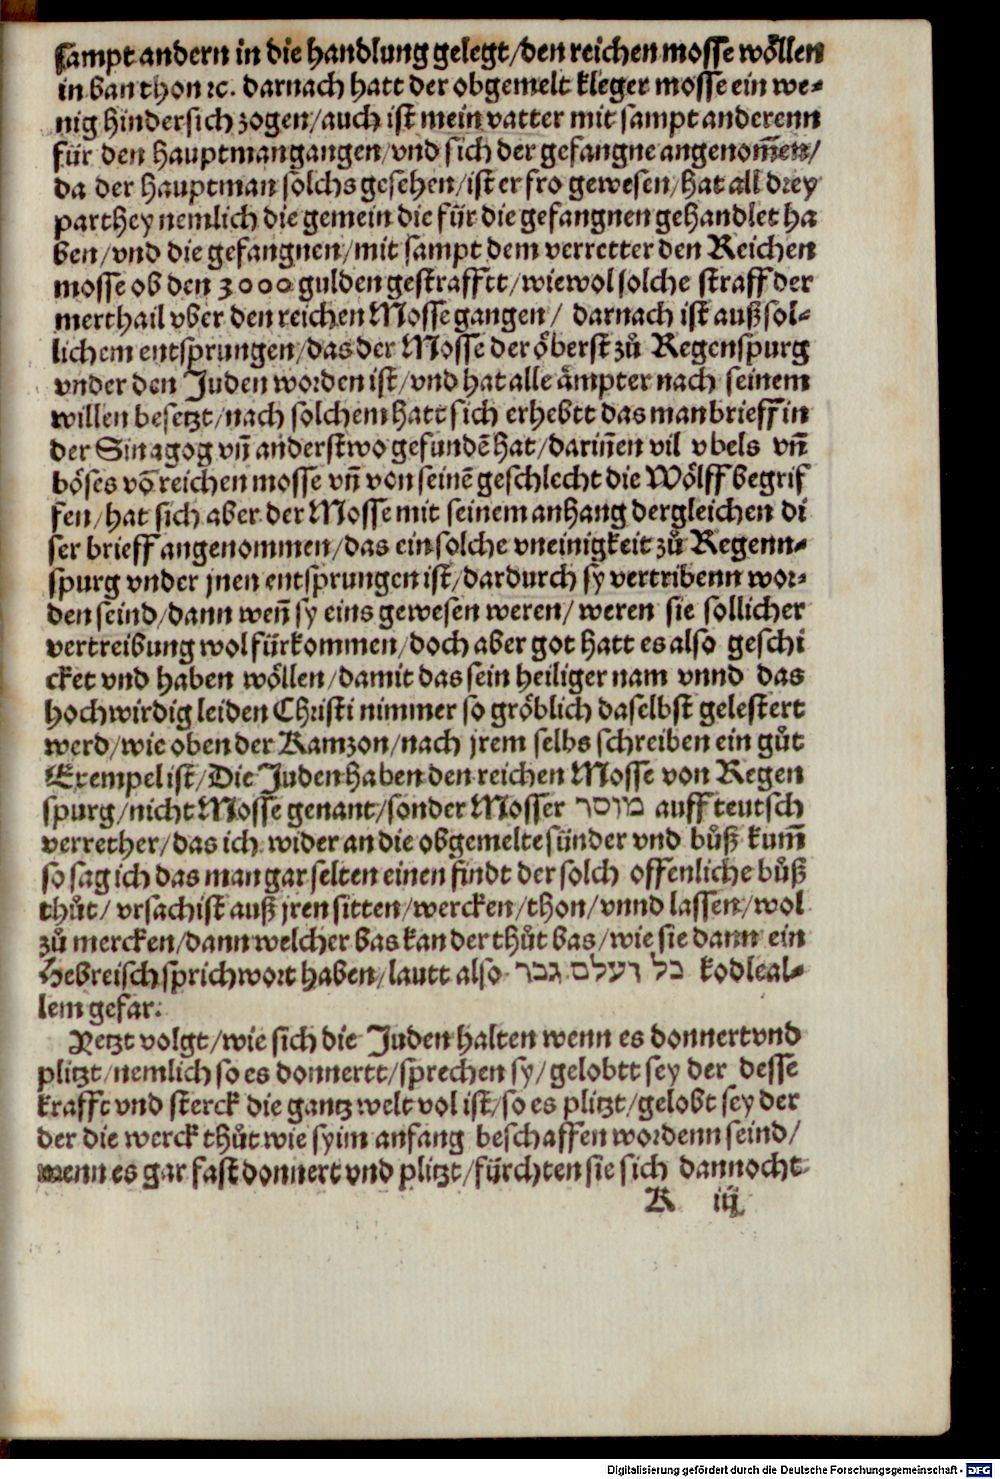 sampt andern in die handlung gelegt/den reichen mosse wöllen
in ban thon ꝛc. darnach hatt der obgemelt kleger mosse ein we-
nig hindersich zogen/auch ist mein vatter mit sampt anderenn
für den hauptman gangen/vnd sich der gefangne angenom̄en/
da der hauptman solchs gesehen/ist er fro gewesen/hat all drey
parthey nemlich die gemein die für die gefangnen gehandlet ha
ben/vnd die gefangnen/mit sampt dem verretter den Reichen
mosse ob den 3000 gulden gestrafftt/wiewol solche straff der
merthail vber den reichen Mosse gangen/ darnach ist auß sol-
lichem entsprungen/das der Mosse der öberst zů Regenspurg
vnder den Juden worden ist/vnd hat alle ämpter nach seinem
willen besetzt/nach solchem hatt sich erhebtt das man brieff in
der Sinagog vn̄ anderstwo gefundē hat/darin̄en vil vbels vn̄
böses vō reichen mosse vn̄ von seinē geschlecht die Wölff begrif
fen/hat sich aber der Mosse mit seinem anhang dergleichen di
ser brieff angenommen/das ein solche vneinigkeit zů Regenn-
spurg vnder jnen entsprungen ist/dardurch sy vertribenn wor-
den seind/dann wen̄ sy eins gewesen weren/ weren sie sollicher
vertreibung wol fürkommen/doch aber got hatt es also geschi
cket vnd haben wöllen/damit das sein heiliger nam vnnd das
hochwirdig leiden Christi nimmer so gröblich daselbst gelestert
werd/wie oben der Ramzon/nach jrem selbs schreiben ein gůt
Exempel ist/Die Juden haben den reichen Mosse von Regen
spurg/nicht Mosse genant/sonder Mosser מוסר auff teutsch
verrether/das ich wider an die obgemelte sünder vnd bůß kum̄
so sag ich das man gar selten einen findt der solch offenliche bůß
thůt/ vrsach ist auß jren sitten/wercken/thon/vnnd lassen/wol
zů mercken/dann welcher bas kan der thůt bas/wie sie dann ein
Hebreisch sprichwort haben/lautt also כל דעלם גבר kodleal-
lem gefar.
Yetzt volgt/wie sich die Juden halten wenn es donnert vnd
plitzt/nemlich so es donnertt/sprechen sy/gelobtt sey der desse
krafft vnd sterck die gantz welt vol ist/so es plitzt/gelobt sey der
der die werck thůt wie sy im anfang beschaffen wordenn seind/
wenn es gar fast donnert vnd plitzt/fürchten sie sich dannocht
K iij
Digitalisierung gefördert durch die Deutsche Forschungsgemeinschaft - DFG